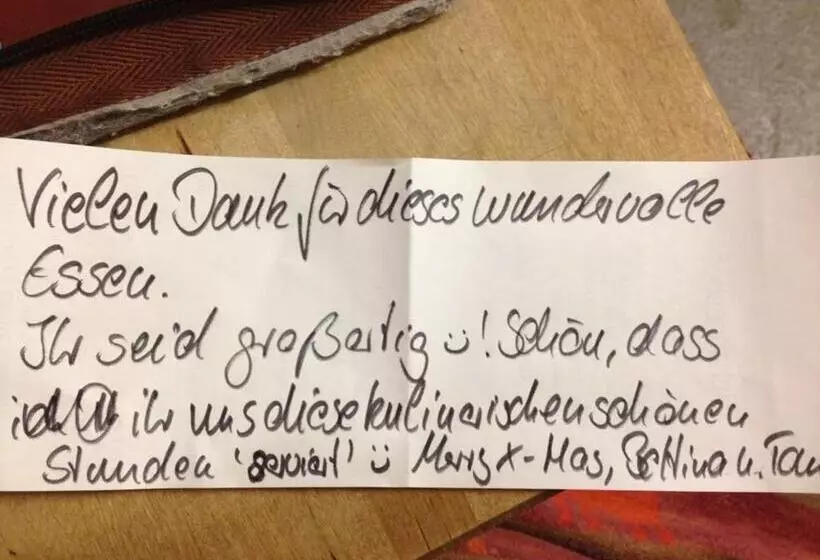 Vielen Dank für dieses wundervolle
Essen.
Ihr seid großartig ü! Schön, dass
ihr uns diese kulinarischen schönen
Stunden 'serviert' ü Merry X-Mas, Bettina u. Tom